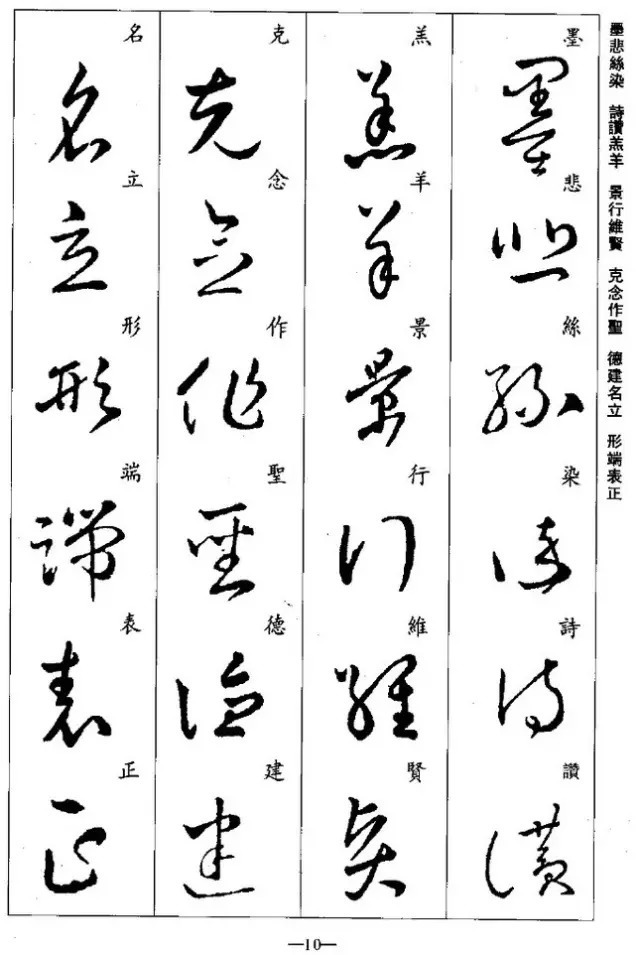 墨悲絲染 詩讚羔羊 景行維賢 克念作聖 德建名立 形端表正
墨悲絲染詩讚
羔羊景行維賢
克念作聖德建
名立形端表正
—10—